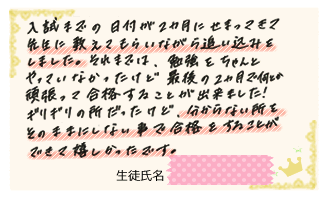 入試までの日付が2ヵ月にせまってきて
先生に教えてもらいながら追い込みを
しました。それまでは、勉強をちゃんと
やっていなかったけど最後の2ヵ月で何とか
頑張って合格することが出来ました!
ギリギリの所だったけど、分からない所を
そのままにしない事で合格をすることが
できて嬉しかったです。
生徒氏名